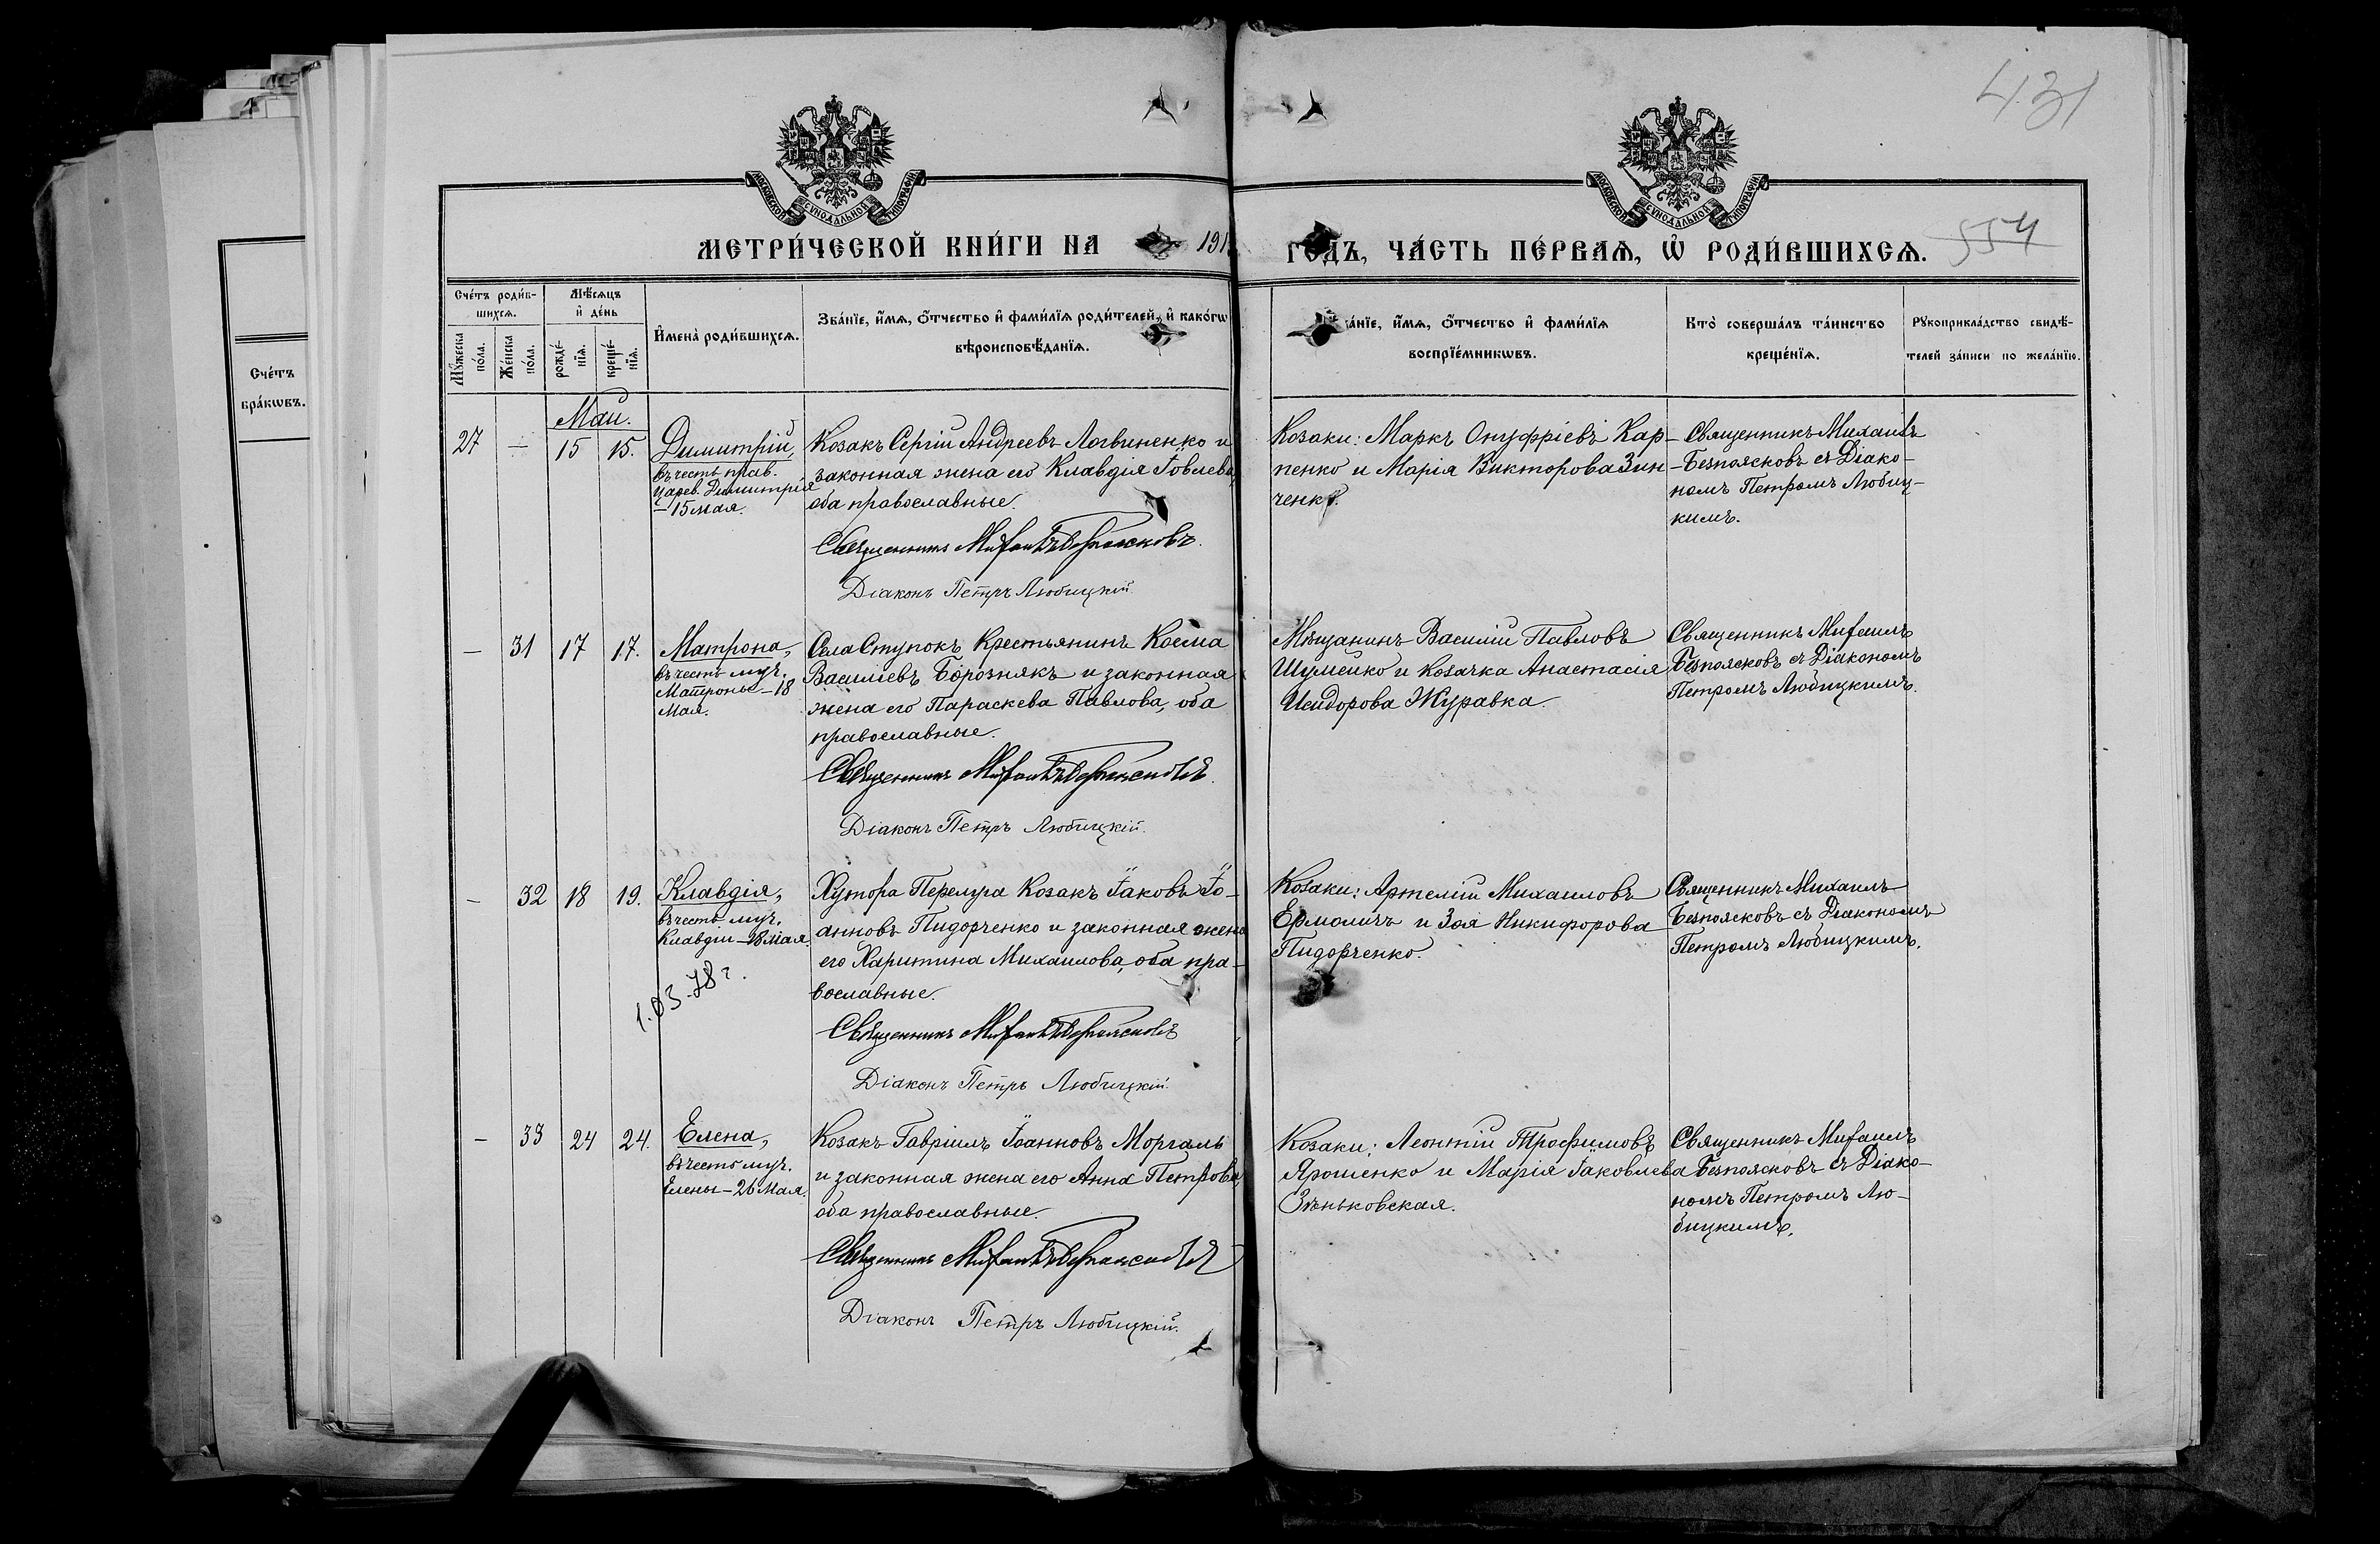 431
МОСКОВСКОЙ СѴНОДАЛЬНОЙ ТИПОГРАФІИ
МОСКОВСКОЙ СѴНОДАЛЬНОЙ ТИПОГРАФІИ
МЕТРИ́ЧЕСКОЙ КНИ́ГИ НА 191
ГОДЪ, ЧА́СТЬ ПЕ́РВАѦ, Ѡ҆ РОДИ́ВШИХСѦ.
554
Сче́тъ
бра́кѡвъ.
Сче́тъ роди́в-
шихсѧ.
Мꙋ́жеска
по́ла.
Же́нска
по́ла.
Мѣ́сѧцъ
и҆ де́нь
рожде́-
нїѧ.
креще́-
нїѧ.
И҆мена̀ роди́вшихсѧ.
Зва́нїе, и҆́мѧ, ѻ҆́тчество и҆ фами́лїѧ роди́телей, и҆ како́гѡ
вѣроисповѣ́данїѧ.
Зва́нїе, и҆́мѧ, ѻ҆́тчество и҆ фами́лїѧ
воспрїе́мникѡвъ.
Кто̀ соверша́лъ та́инство
креще́нїѧ.
Рꙋкоприкла́дство свидѣ́-
телей за́писи по жела́нїю.
Май.
27 — 15 15.
Димитрій,
въ честь прав.
Царев. Димитрія
— 15 мая.
Козакъ Сергій Андреевъ Логвиненко и
законная жена его Клавдія Іовлева,
оба православные.
Священникъ Михаилъ Безпоясковъ.
Діаконъ Петръ Любицкій.
Козаки: Маркъ Онуфріевъ Кар-
пенко и Марія Викторова Зин-
ченко.
Священникъ Михаилъ
Безпоясковъ съ Діако-
номъ Петромъ Любиц-
кимъ.
— 31 17 17.
Матрона,
въ честь муч.
Матроны — 18
Мая.
Села Ступокъ Крестьянинъ Косма
Василіевъ Борознякъ и законная
жена его Параскева Павлова, оба
православные.
Священникъ Михаилъ Безпоясковъ.
Діаконъ Петръ Любицкій.
Мѣщанинъ Василій Павловъ
Шумейко и Козачка Анастасія
Исидорова Журавка.
Священникъ Михаилъ
Безпоясковъ съ Діакономъ
Петромъ Любицкимъ.
— 32 18 19.
Клавдія,
въ честь муч.
Клавдіи — 18 мая
1.03.78 г.
Хутора Перелура Козакъ Іаковъ Іо-
анновъ Пидорченко и законная жена
его Харитина Михаилова, оба пра-
вославные.
Священникъ Михаилъ Безпоясковъ
Діаконъ Петръ Любицкій.
Козаки: Артемій Михаиловъ
Ермоличъ и Зоя Никифорова
Пидорченко.
Священникъ Михаилъ
Безпоясковъ съ Діакономъ
Петромъ Любицкимъ.
— 33 24 24.
Елена,
въ честь муч.
Елены — 26 Мая.
Козакъ Гавріилъ Іоанновъ Моргаль
и законная жена его Анна Петрова,
оба православные.
Священникъ Михаилъ Безпоясковъ
Діаконъ Петръ Любицкій.
Козаки: Леонтій Трофимовъ
Ярошенко и Марія Іаковлева
Зѣньковская.
Священникъ Михаилъ
Безпоясковъ съ Діако-
номъ Петромъ Лю-
бицкимъ.